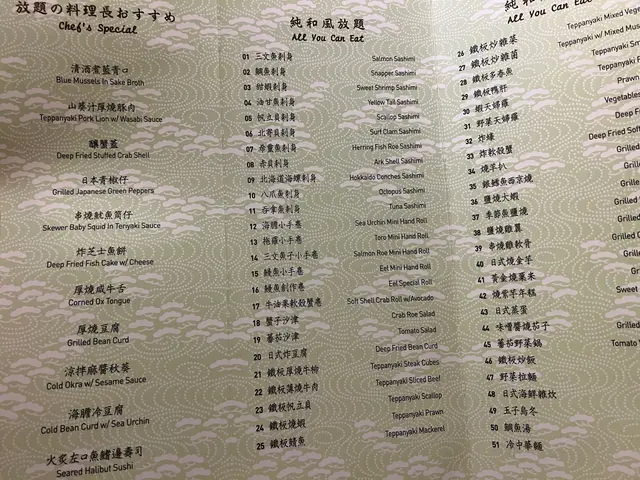 放題の料理長おすすめ
Chef's Special
清酒煮藍青口
Blue Mussels In Sake Broth
山葵汁厚燒豚肉
Teppanyaki Pork Lion w/ Wasabi Sauce
釀蟹蓋
Deep Fried Stuffed Crab Shell
日本青椒仔
Grilled Japanese Green Peppers
串燒魷魚筒仔
Skewer Baby Squid In Teriyaki Sauce
炸芝士魚餅
Deep Fried Fish Cake w/ Cheese
厚燒咸牛舌
Corned Ox Tongue
厚燒豆腐
Grilled Bean Curd
涼拌麻醬秋葵
Cold Okra w/ Sesame Sauce
海膽冷豆腐
Cold Bean Curd w/ Sea Urchin
火炙左口魚鰭邊壽司
Seared Halibut Sushi
純和風放題
All You Can Eat
01 三文魚刺身 Salmon Sashimi
02 鯛魚刺身 Snapper Sashimi
03 甜蝦刺身 Sweet Shrimp Sashimi
04 油甘魚刺身 Yellow Tail Sashimi
05 帆立貝刺身 Scallop Sashimi
06 北寄貝刺身 Surf Clam Sashimi
07 希靈魚刺身 Herring Fish Roe Sashimi
08 赤貝刺身 Ark Shell Sashimi
09 北海道海螺刺身 Hokkaido Conches Sashimi
10 八爪魚刺身 Octopus Sashimi
11 吞拿魚刺身 Tuna Sashimi
12 海膽小手卷 Sea Urchin Mini Hand Roll
13 拖羅小手卷 Toro Mini Hand Roll
14 三文魚子小手卷 Salmon Roe Mini Hand Roll
15 鰻魚小手卷 Eel Mini Hand Roll
16 鰻魚創作卷 Eel Special Roll
17 牛油果軟殼蟹卷 Soft Shell Crab Roll w/Avocado
18 蟹子沙律 Crab Roe Salad
19 蕃茄沙律 Tomato Salad
20 日式炸豆腐 Deep Fried Bean Curd
21 鐵板厚燒牛柳 Teppanyaki Steak Cubes
22 鐵板薄燒牛肉 Teppanyaki Sliced Beef
23 鐵板帆立貝 Teppanyaki Scallop
24 鐵板燒蝦 Teppanyaki Prawn
25 鐵板鯖魚 Teppanyaki Mackerel
All You Can Eat
26 鐵板炒雜菜 Teppanyaki Mixed Vege
27 鐵板炒雜菌 Teppanyaki w/ Mixed Mus
28 鐵板多春魚 Teppanyaki Sm
29 鐵板鴨肝 Teppanyaki F
30 蝦天婦羅 Prawn
31 野菜天婦羅 Vegetables
32 炸蠔 Deep Fried
33 炸軟殼蟹 Deep Fried Sof
34 燒羊扒 Grilled
35 銀鱈魚西京燒 Grilled
36 鹽燒大蝦 Grilled
37 季節魚鹽燒 Grilled
38 鹽燒雞翼 Grilled
39 串燒雞軟骨 Grilled
40 日式燒金菇 Grilled
41 黃金燒粟米 Grille
42 燒紫芋年糕 Sweet
43 日式蒸蛋
44 味噌醬燒茄子 Grilled
45 蕃茄野菜鍋 Tomato
46 鐵板炒飯
47 野菜拉麵
48 日式海鮮雜炊
49 玉子烏冬
50 鯛魚湯
51 冷中華麵